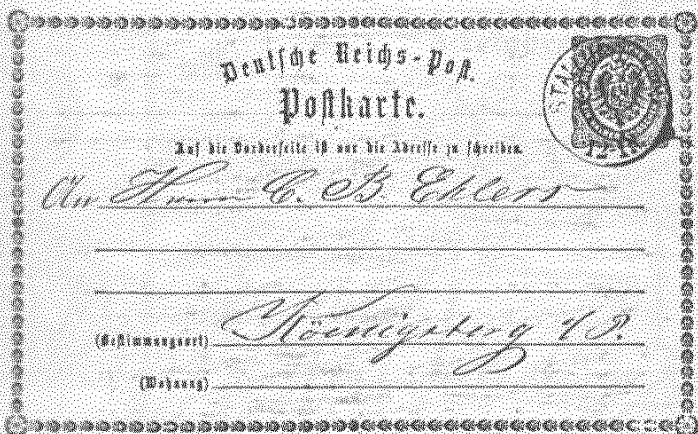 Deutsche Reichs-Post.
Postkarte.
Auf die Vorderseite ist nur die Adresse zu schreiben.
An Herrn C. B. Ehlers
(Bestimmungsort) Königsberg i/P.
(Wohnung)